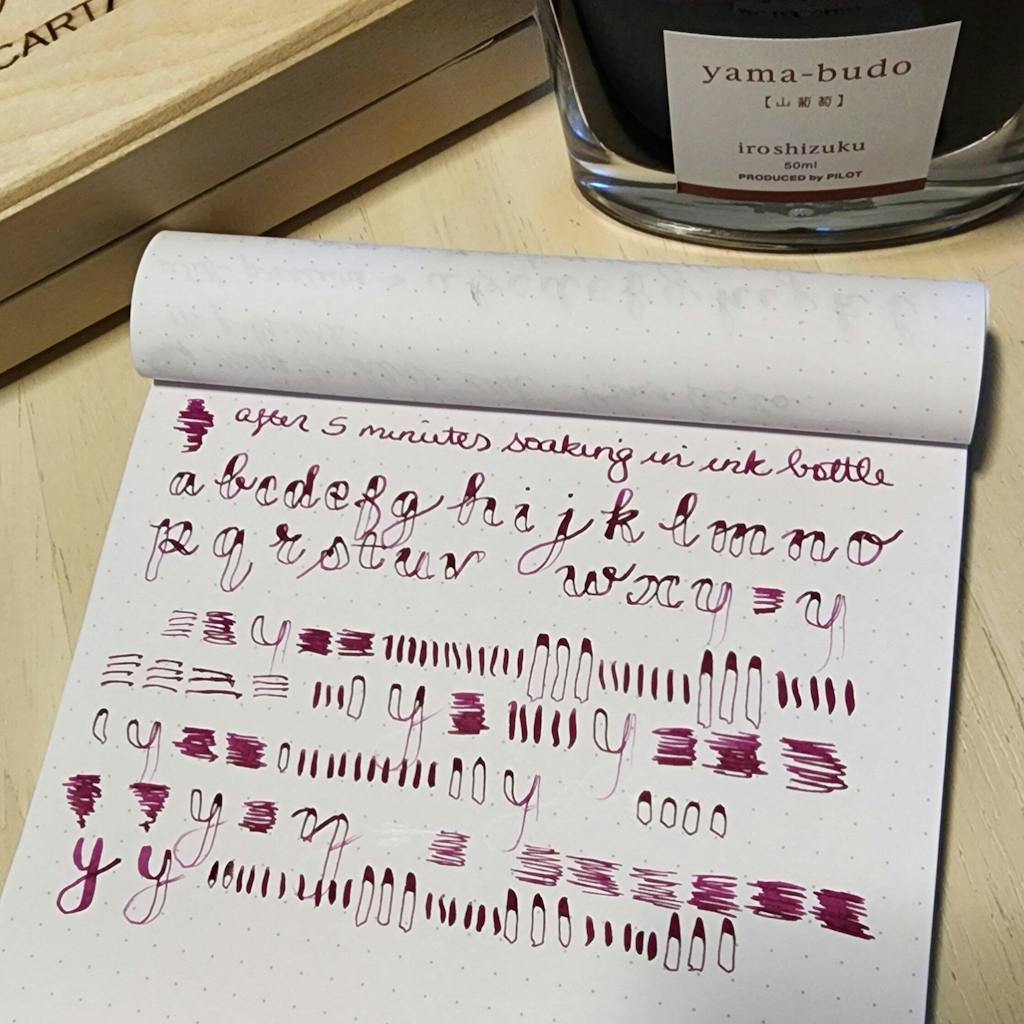 CARTA
yama-budo
【山葡萄】
iroshizuku
50ml
PRODUCED by PILOT
after 5 minutes soaking in ink bottle
a b c d e f g h i j k l m n o
p q r s t u v w x y y
y
y y
y y
y n
y y